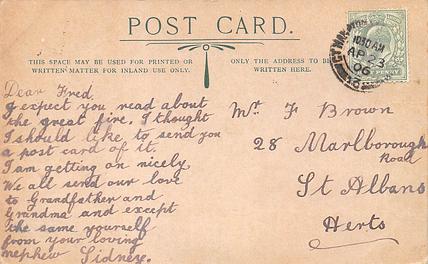 POST CARD.
THIS SPACE MAY BE USED FOR PRINTED OR
WRITTEN MATTER FOR INLAND USE ONLY.
ONLY THE ADDRESS TO BE
WRITTEN HERE.
10 30 AM
AP 23
06
Dear Fred,
I expect you read about
the great fire. I thought
I should like to send you
a post card of it.
I am getting on nicely
We all send our love
to Grandfather and
Grandma and except
the same yourself
from your loving
nephew Sidney.
Mr. F Brown
28 Marlborough
Road
St Albans
Herts